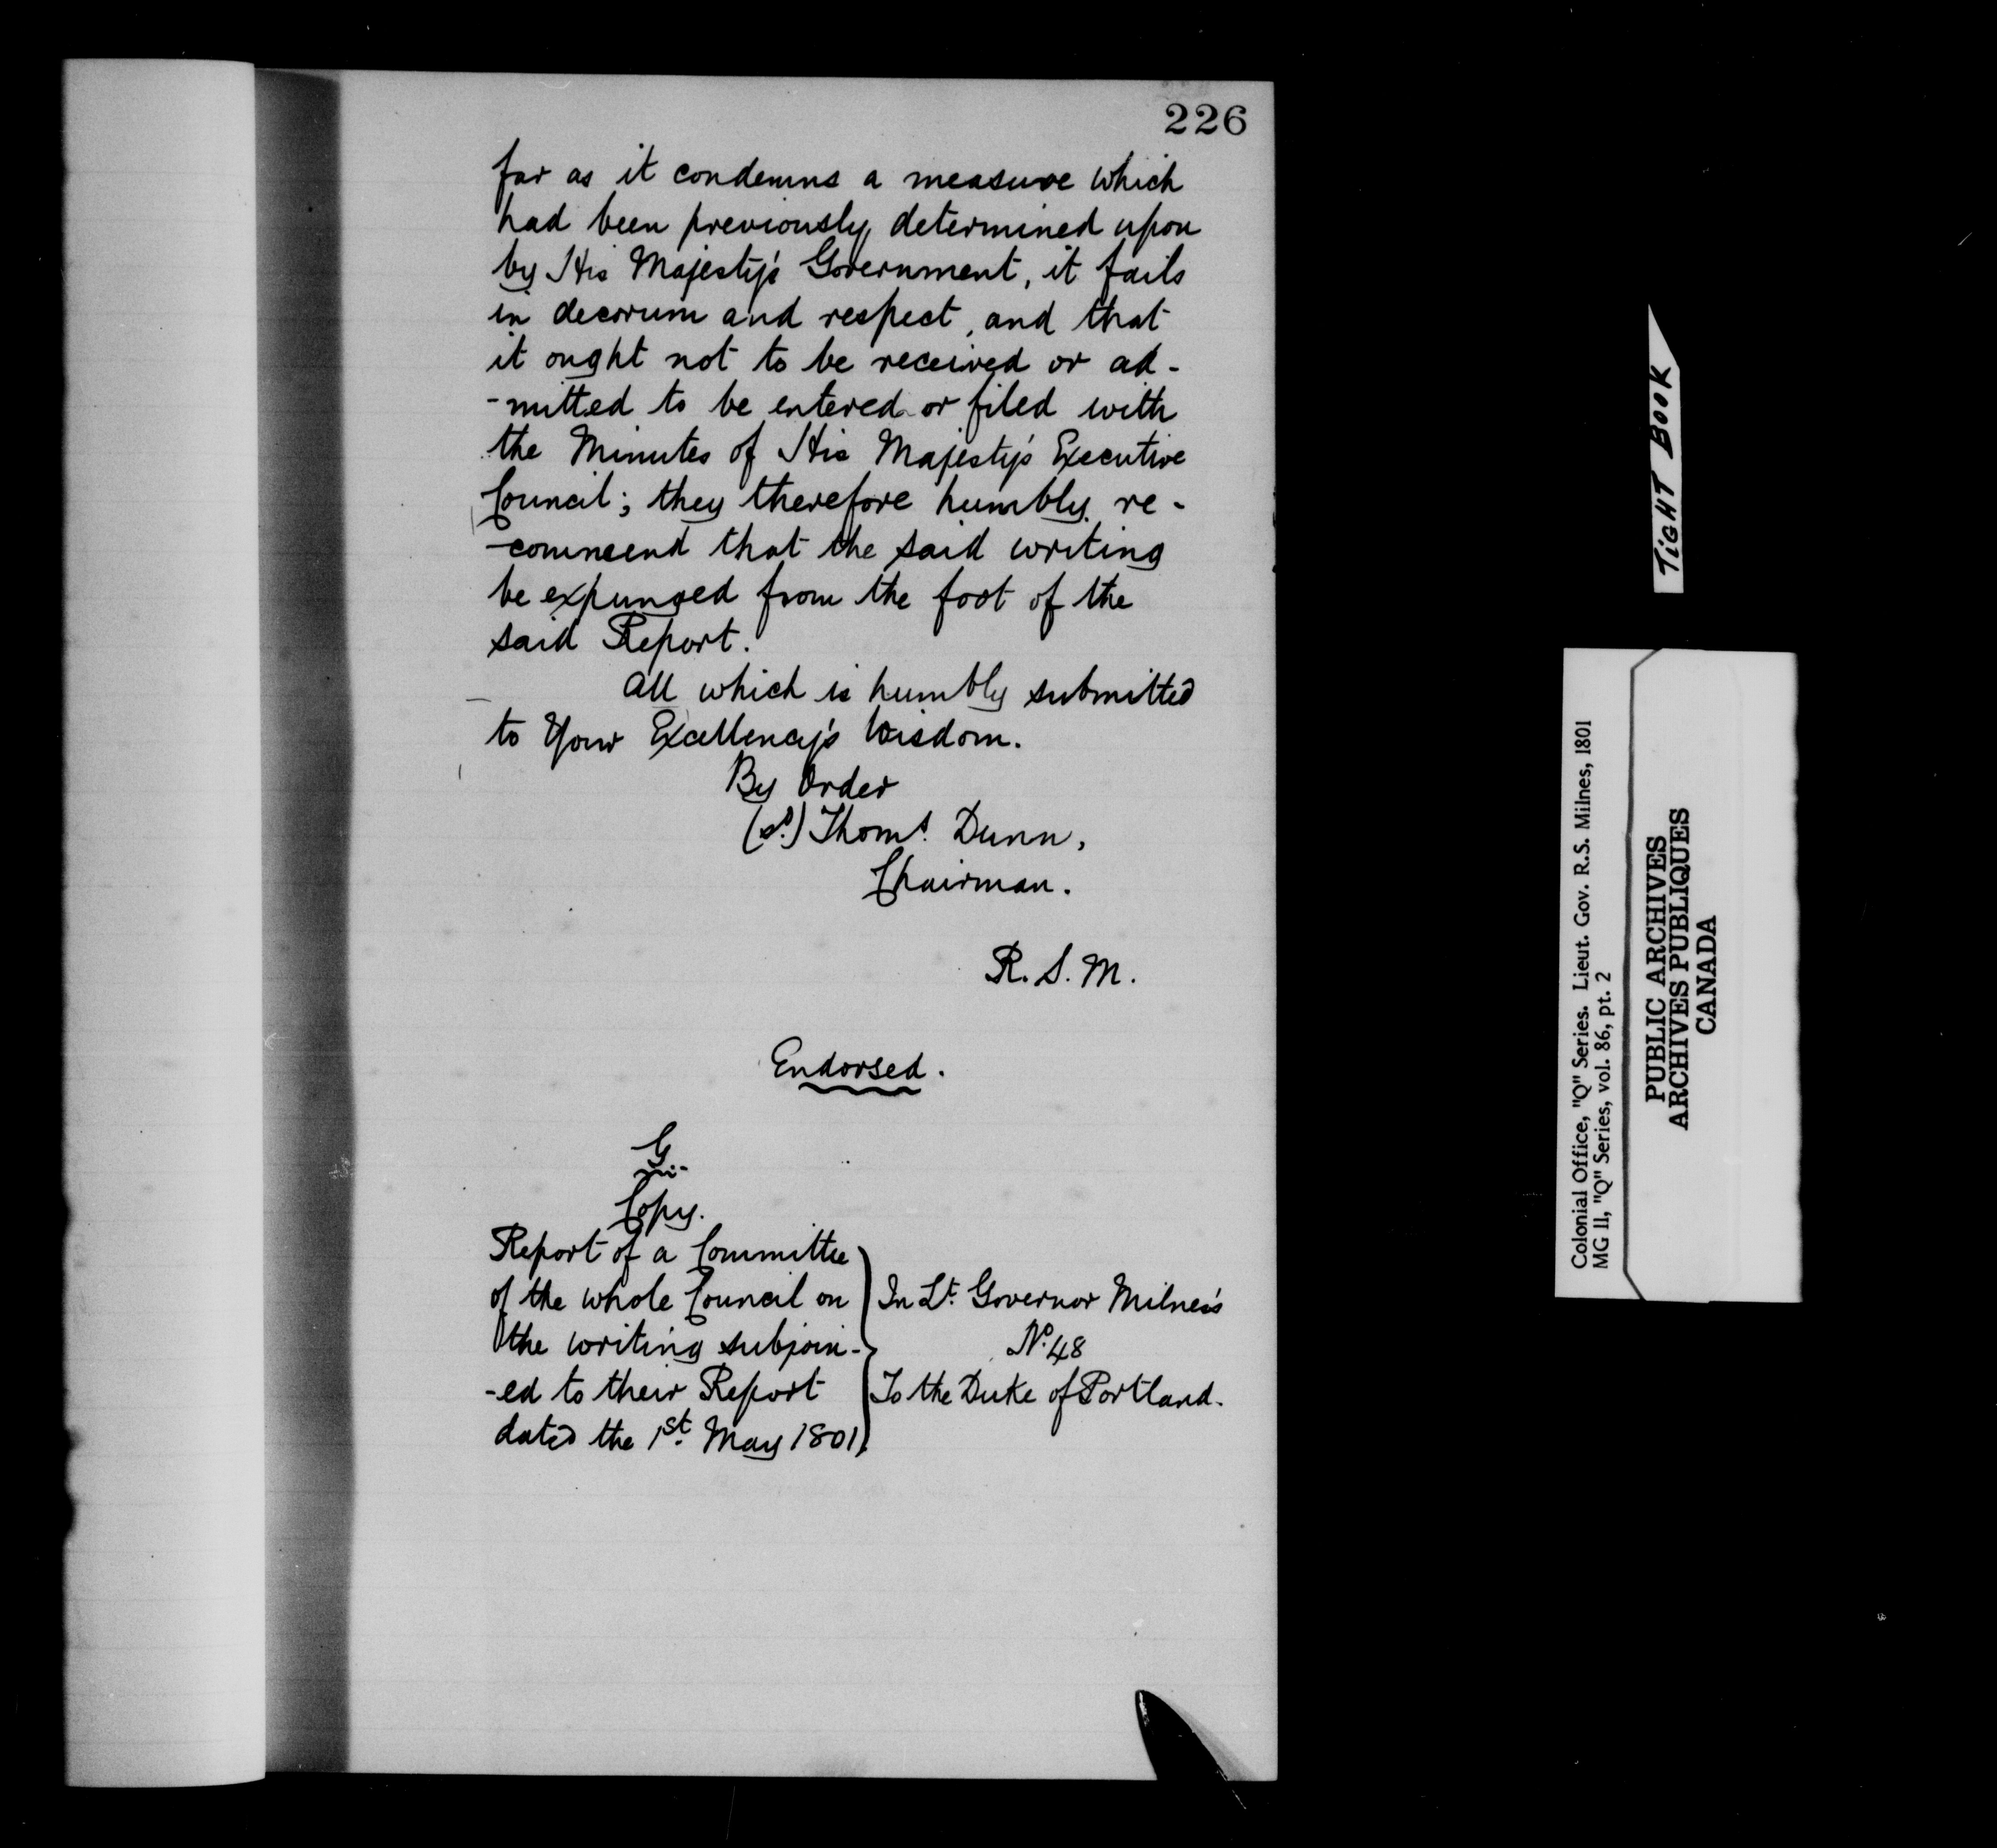 226
far as it condemns a measure which
had been previously determined upon
by His Majesty's Government, it fails
in decorum and respect, and that
it ought not to be received or ad-
-mitted to be entered or filed with
the Minutes of His Majesty's Executive
Council; they therefore humbly re-
-commend that the said writing
be expunged from the foot of the
said Report.
All which is humbly submitted
to Your Excellency's Wisdom.
By Order
(sd.) Thoms. Dunn,
Chairman.
R. S. M.
Endorsed.
G
Copy.
Report of a Committee
of the whole Council on
the writing subjoin-
-ed to their Report
dated the 1st. May 1801.
In Lt. Governor Milnes's
No. 48
To the Duke of Portland.
TIGHT BOOK
Colonial Office, "Q" Series. Lieut. Gov. R.S. Milnes, 1801
MG 11, "Q" Series, vol. 86, pt. 2
PUBLIC ARCHIVES
ARCHIVES PUBLIQUES
CANADA